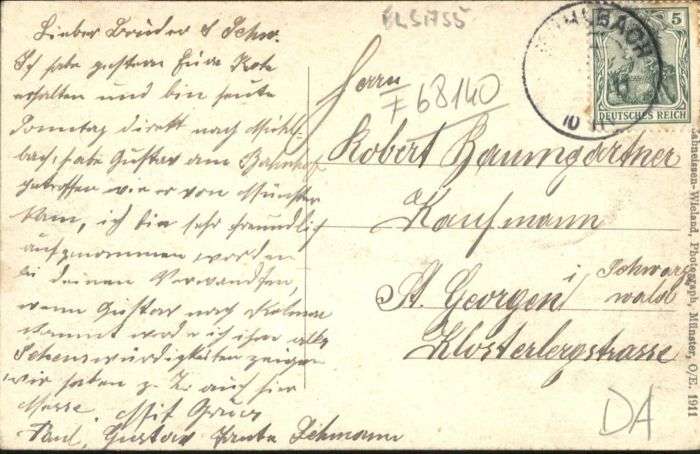 Lieber Bruder & Schw.
Ich habe gestern Eure Karte
erhalten und bin heute
Sonntag direkt nach Mühl-
bach, habe Gustav am Bahnhof
getroffen wie er von Münster
kam, ich bin sehr freundlich
aufgenommen worden
bei deinen Verwandten,
wenn Gustav nach Kolmar
kommt werde ich ihm alle
Sehenswürdigkeiten zeigen
wir haben z. Zt. auch hier
Messe. Mit Gruss
Paul, Gustav Lehmann
ELS1755
F68140
Herrn
Robert Baumgartner
Kaufmann
St. Georgen i Schwarz
wald
Klosterbergstrasse
DA
MÜHLBACH
10
5
DEUTSCHES REICH
Wieland, Photograph, Münster, O/E. 1911